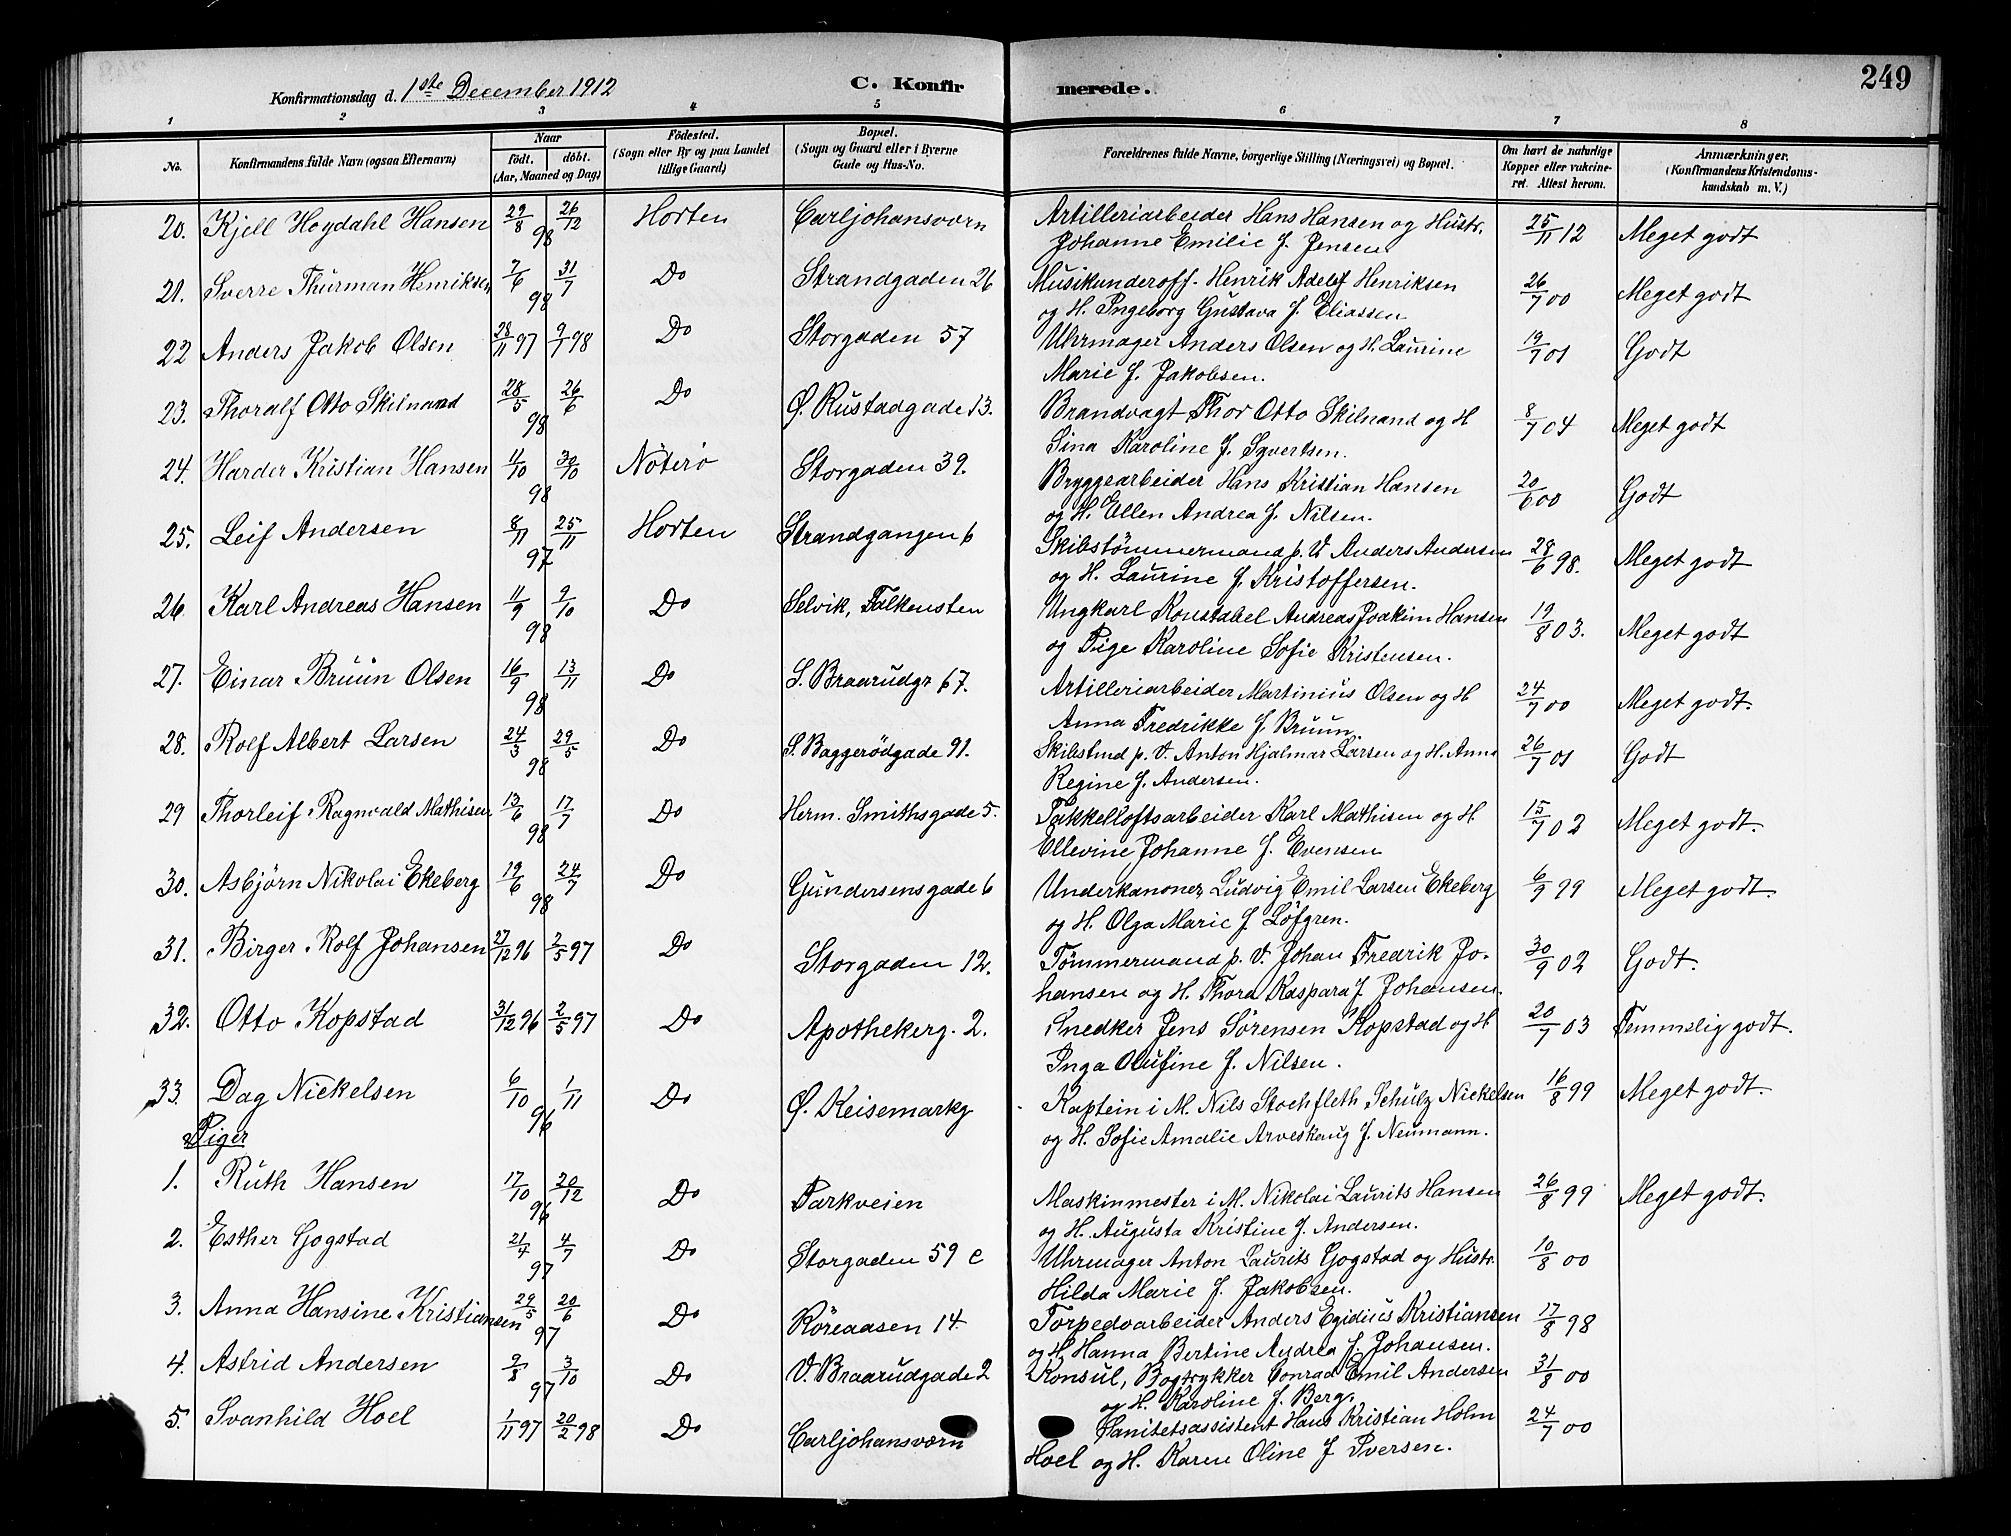 249
Konfirmationsdag d. 1ste December 1912 C. Konfirmerede.
1 2 3 4 5 6 7 8
No. Konfirmandens fulde Navn (ogsaa Efternavn) Naar födt. döbt. (Aar, Maaned og Dag) Födested. (Sogn eller By og paa Landet tillige Gaard) Bopæl. (Sogn og Gaard eller i Byerne Gade og Hus-No. Forældrenes fulde Navne, borgerlige Stilling (Næringsvei) og Bopæl. Om havt de naturlige Kopper eller vakcineret. Attest herom. Anmærkninger. (Konfirmandens Kristendomskundskab m. V.)
20. Kjell Høydahl Hansen 29/8 98 26/12 Horten Carljohansværn Artilleriarbeider Hans Hansen og Hustr. 25/11 12 Meget godt
Johanne Emilie f. Jensen
21. Sverre Thurman Henriksen 7/6 98 31/7 Do Strandgaden 26 Musikunderoff. Henrik Adolf Henriksen 26/7 00 Meget godt
og H. Ingeborg Gustava f. Eliassen
22 Anders Jakob Olsen 28/11 97 9/7 98 Do Storgaden 57 Uhrmager Anders Olsen og H. Laurine 19/7 01 Godt
Marie f. Jakobsen.
23. Thoralf Otto Skilnand 28/5 98 26/6 Do Ø. Rustadgade 13. Brandvagt Thor Otto Skilnand og H 8/7 04 Meget godt
Sina Karoline f. Syvertsen.
24. Harder Kristian Hansen 11/10 98 30/10 Nöterö Storgaden 39. Bryggearbeider Hans Kristian Hansen 20/6 00 Godt
og H. Ellen Andrea f. Nilsen.
25. Leif Andersen 8/11 97 25/11 Horten Strandgangen 6 Skibstömmermand p. V Anders Andersen 28/6 98. Meget godt
og H. Laurine f. Kristoffersen.
26 Karl Andreas Hansen 11/9 98 9/10 Do Selvik, Falkensten Ungkarl Konstabel Andreas Joakim Hansen 19/8 03. Meget godt
og Pige Karoline Sofie Kristensen.
27. Einar Bruun Olsen 16/9 98 13/11 Do S. Braarudgt 67. Artilleriarbeider Martinius Olsen og H 24/7 00 Meget godt.
Anna Fredrikke f. Bruun.
28. Rolf Albert Larsen 24/3 98 29/5 Do S. Baggerödgade 91. Skibstmd p. V. Anton Hjalmar Larsen og H. Anna 26/7 01 Godt
Regine f. Andersen.
29 Thorleif Ragnvald Mathisen 13/6 98 17/7 Do Herm. Smithsgade 5. Takkelloftsarbeider Karl Mathisen og H 15/7 02 Meget godt.
Ellevine Johanne f. Evensen
30. Asbjörn Nikolai Ekeberg 19/6 98 24/7 Do Gundersensgade 6 Underkanoner Ludvig Emil Larsen Ekeberg 6/9 99 Meget godt.
og H. Olga Marie f Löfgren.
31. Birger Rolf Johansen 27/12 96 2/5 97 Do Storgaden 12. Tömmermand p. V. Johan Fredrik Jo- 30/9 02 Godt.
hansen og H. Thora Kaspara f Johansen.
32. Otto Kopstad 31/12 96 2/5 97 Do Apothekerg. 2. Snedker Jens Sörensen Kopstad og H 20/7 03 Temmelig godt.
Inga Olufine f. Nilsen.
33. Dag Nickelsen 6/10 96 1/11 Do Ø. Keisemarkg Kaptein i M. Nils Stochfleth Schulz Nickelsen 16/8 99 Meget godt.
og H. Sofie Amalie Arveskoug f. Neumann.
Piger
1. Ruth Hansen 17/10 96 20/12 Do Parkveien Maskinmester i M. Nikolai Laurits Hansen 26/8 99 Meget godt.
og H. Augusta Kristine f. Andersen.
2. Esther Gogstad 21/4 97 4/7 Do Storgaden 59 c Uhrmager Anton Laurits Gogstad og Hustr. 10/8 00
Hilda Marie f. Jakobsen.
3. Anna Hansine Kristiansen 29/5 97 20/6 Do Röreaasen 14 Torpedoarbeider Anders Egidius Kristiansen 17/8 98
og H. Hanna Bertine Andrea f. Johansen.
4. Astrid Andersen 9/8 97 3/10 Do V. Braarudgade 2 Konsul, Bogtrykker Conrad Emil Andersen 31/8 00
og H. Karoline f. Berg.
5. Svanhild Hoel 1/11 97 20/2 98 Do Carljohansværn Sanitetsassistent Hans Kristian Holm 24/7 00
Hoel og H. Karen Oline f Iversen.